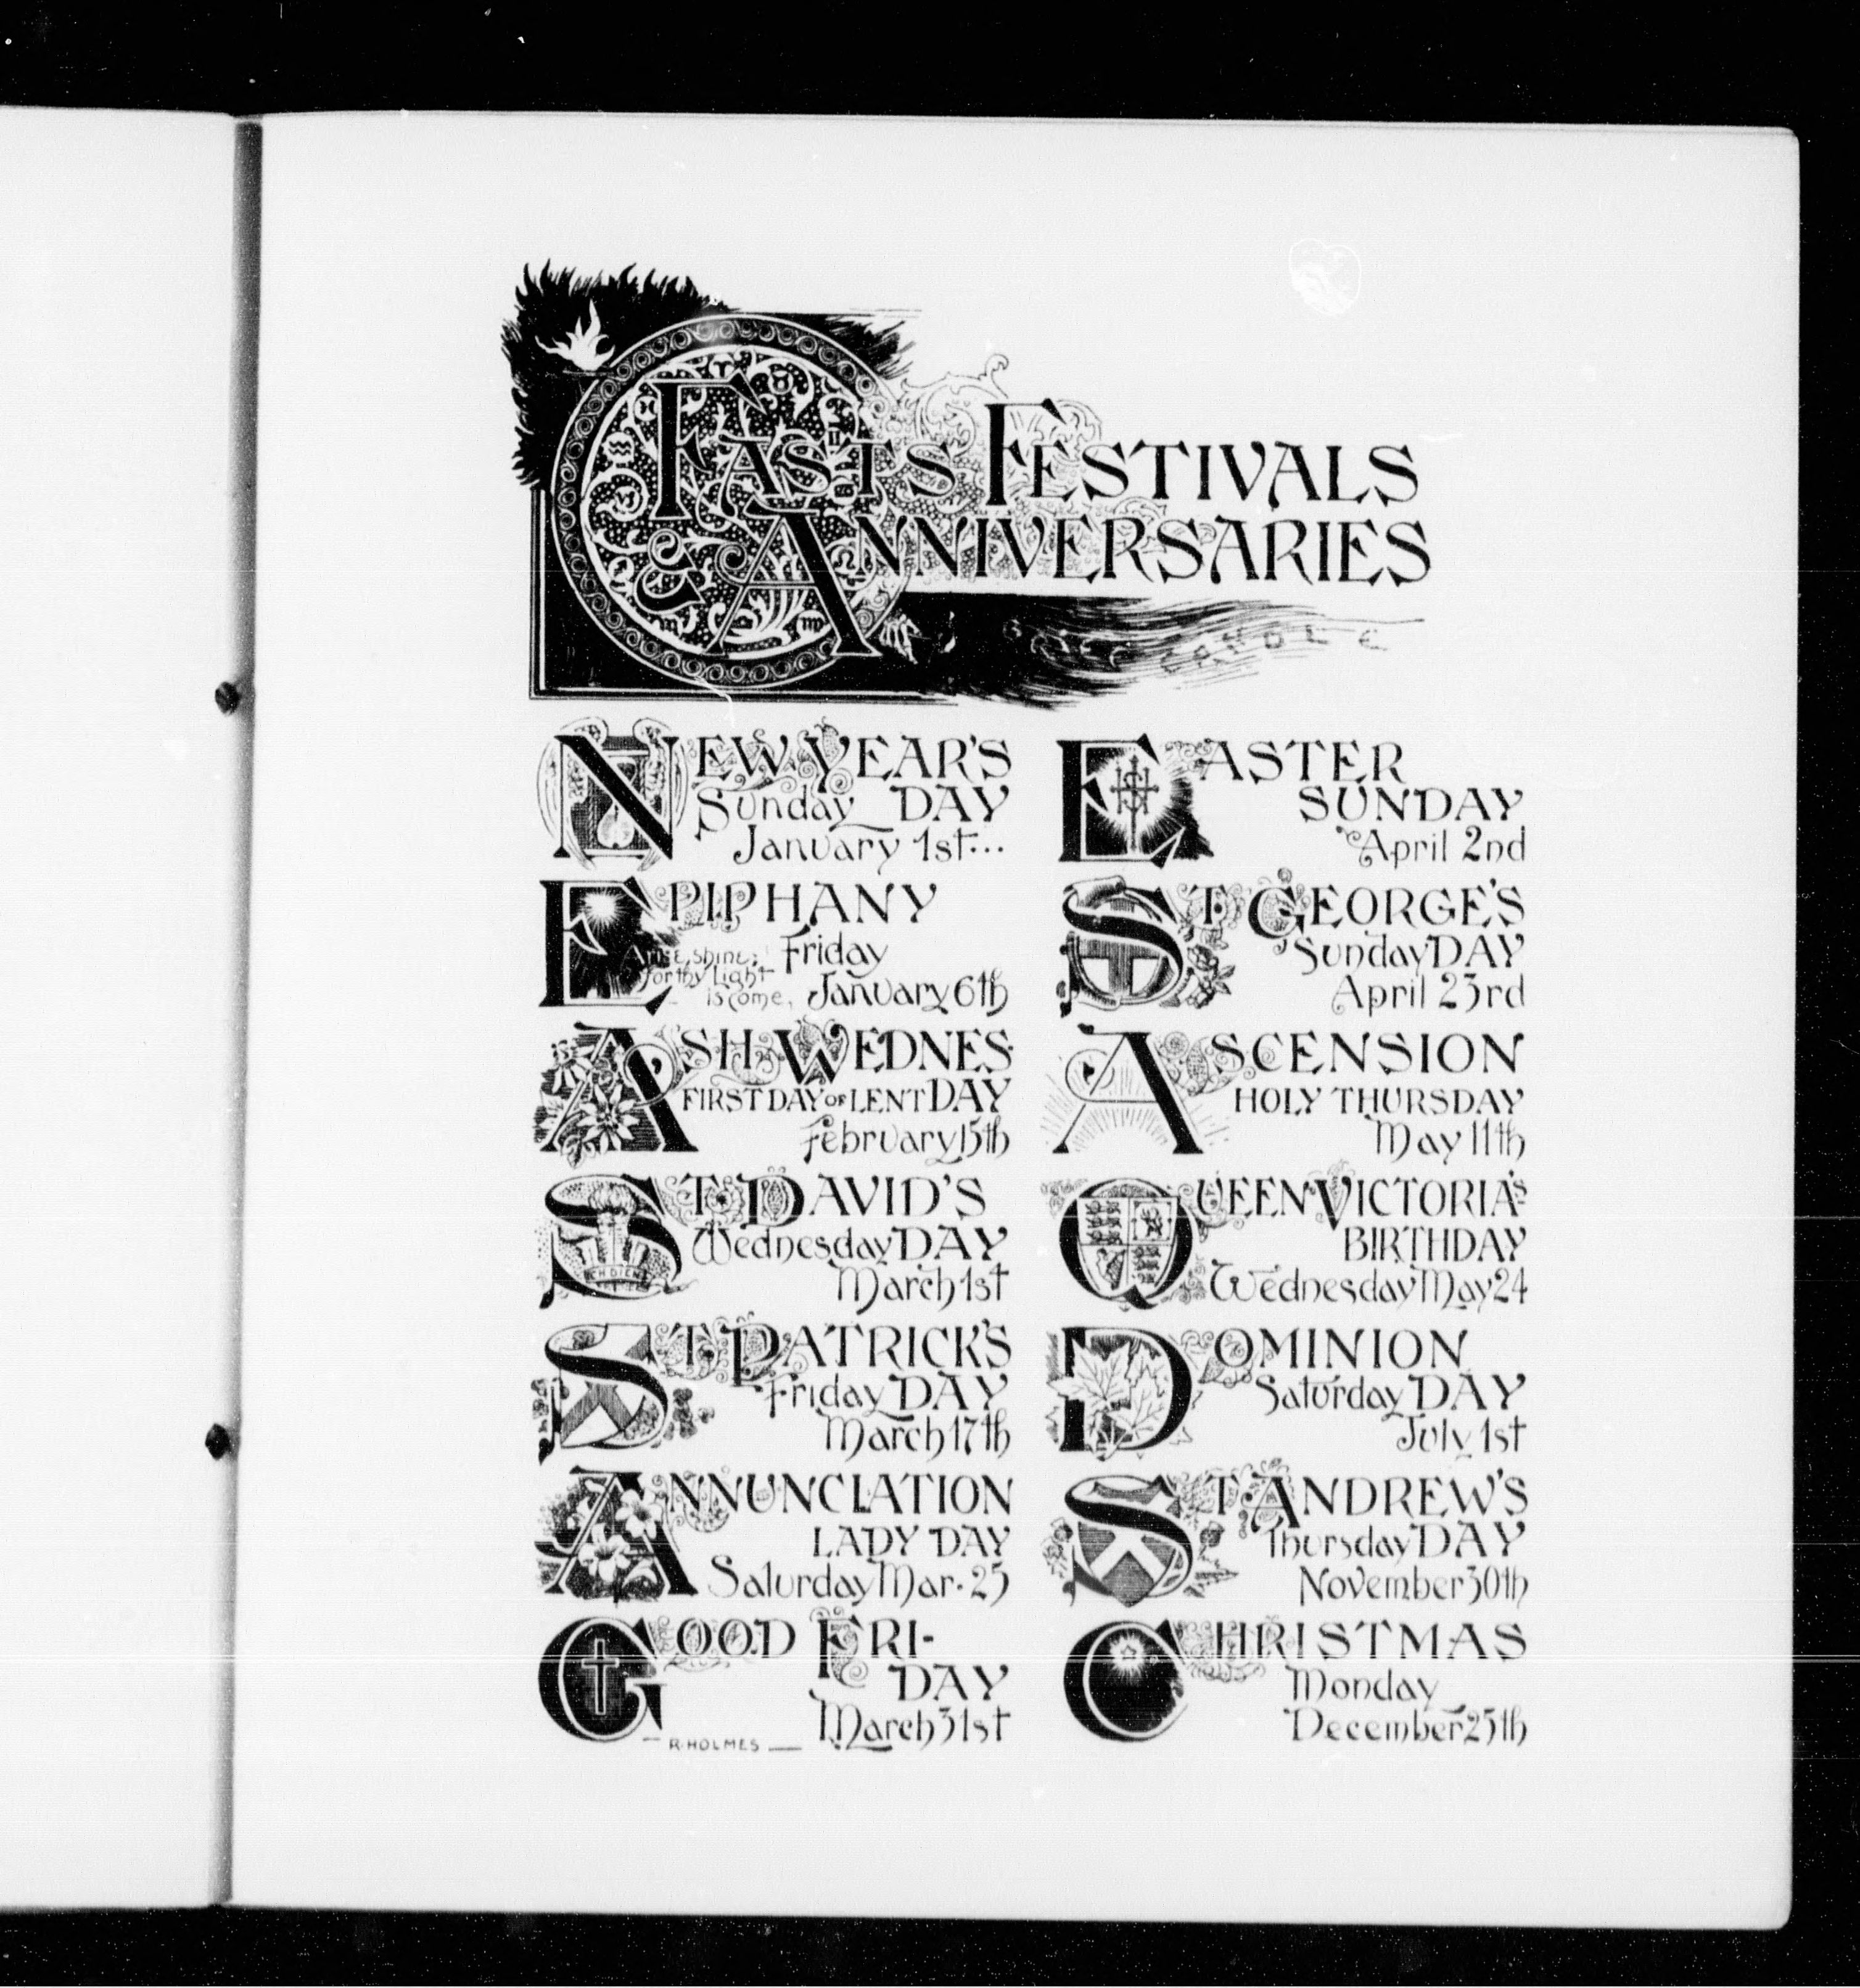 FASTS FESTIVALS
& ANNIVERSARIES
BRIEF CANDLE
NEW YEAR'S
Sunday DAY
January 1st...
EPIPHANY
Arise, shine; Friday
for thy Light
is come, January 6th
ASH WEDNES-
FIRST DAY OF LENT DAY
February 15th
ST. DAVID'S
Wednesday DAY
ICH DIEN
March 1st
ST. PATRICK'S
Friday DAY
March 17th
ANNUNCIATION
LADY DAY
Saturday Mar. 25
GOOD FRI-
DAY
March 31st
R. HOLMES
EASTER
IHS
SUNDAY
April 2nd
ST. GEORGE'S
Sunday DAY
April 23rd
ASCENSION
HOLY THURSDAY
May 11th
QUEEN VICTORIA'S
BIRTHDAY
Wednesday May 24
DOMINION
Saturday DAY
July 1st
ST ANDREW'S
Thursday DAY
November 30th
CHRISTMAS
Monday
December 25th